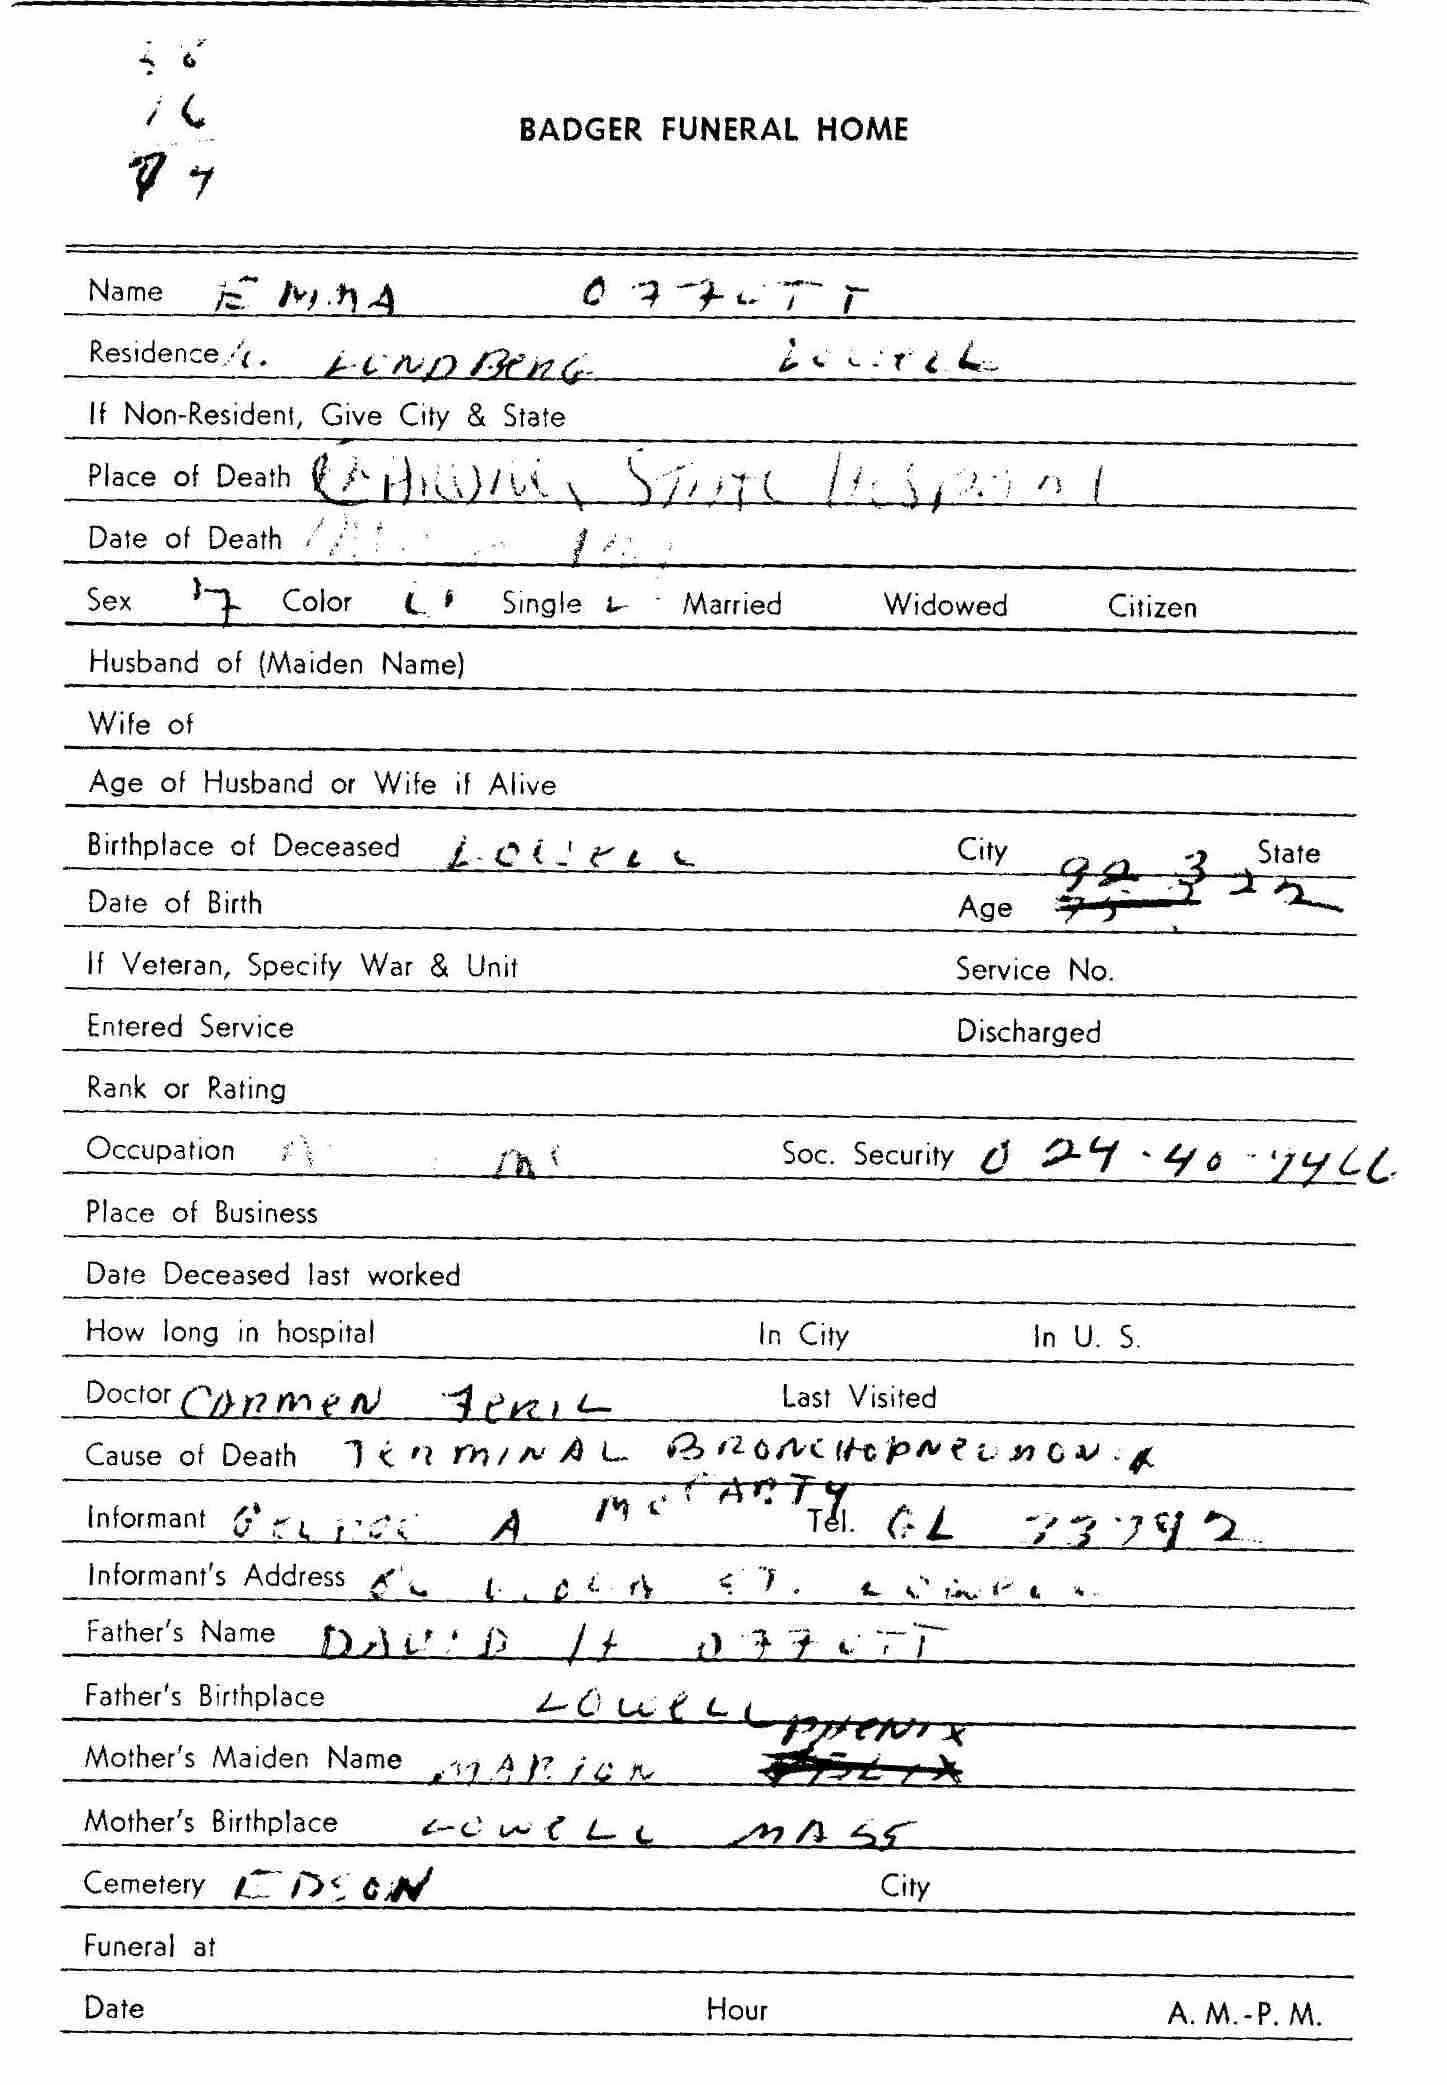 16
BADGER FUNERAL HOME
Name EMMA OFFUTT
Residence LUNDBERG LOWELL
If Non-Resident, Give City & State
Place of Death State Hospital
Date of Death
Sex F Color Single Married Widowed Citizen
Husband of (Maiden Name)
Wife of
Age of Husband or Wife if Alive
Birthplace of Deceased LOWELL City State
Date of Birth Age 92 3 22
If Veteran, Specify War & Unit Service No.
Entered Service Discharged
Rank or Rating
Occupation Soc. Security 024-40-7466
Place of Business
Date Deceased last worked
How long in hospital In City In U. S.
Doctor CARMEN FERIL Last Visited
Cause of Death TERMINAL BRONCHOPNEUMONIA
Informant GEORGE A McCARTY Tel. GL 73792
Informant's Address ST. LOWELL
Father's Name DAVID H OFFUTT
Father's Birthplace LOWELL
PHENIX
Mother's Maiden Name MARION
Mother's Birthplace LOWELL MASS
Cemetery EDSON City
Funeral at
Date Hour A. M.-P. M.